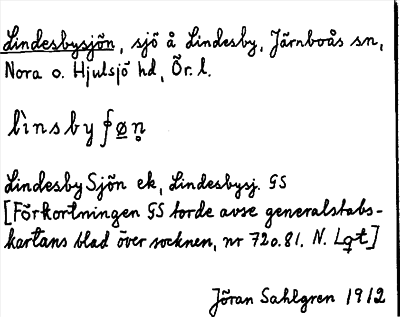 Lindesbysjön, sjö å Lindesby, Järnboås sn,
Nora o. Hjulsjö hd, Ör. l.
lìnsbyʃøn̥
LindesbySjön ek, Lindesbysj. GS
[Förkortningen GS torde avse generalstabs-
kartans blad över socknen, nr 72 o. 81. N. Lgt]
Jöran Sahlgren 1912